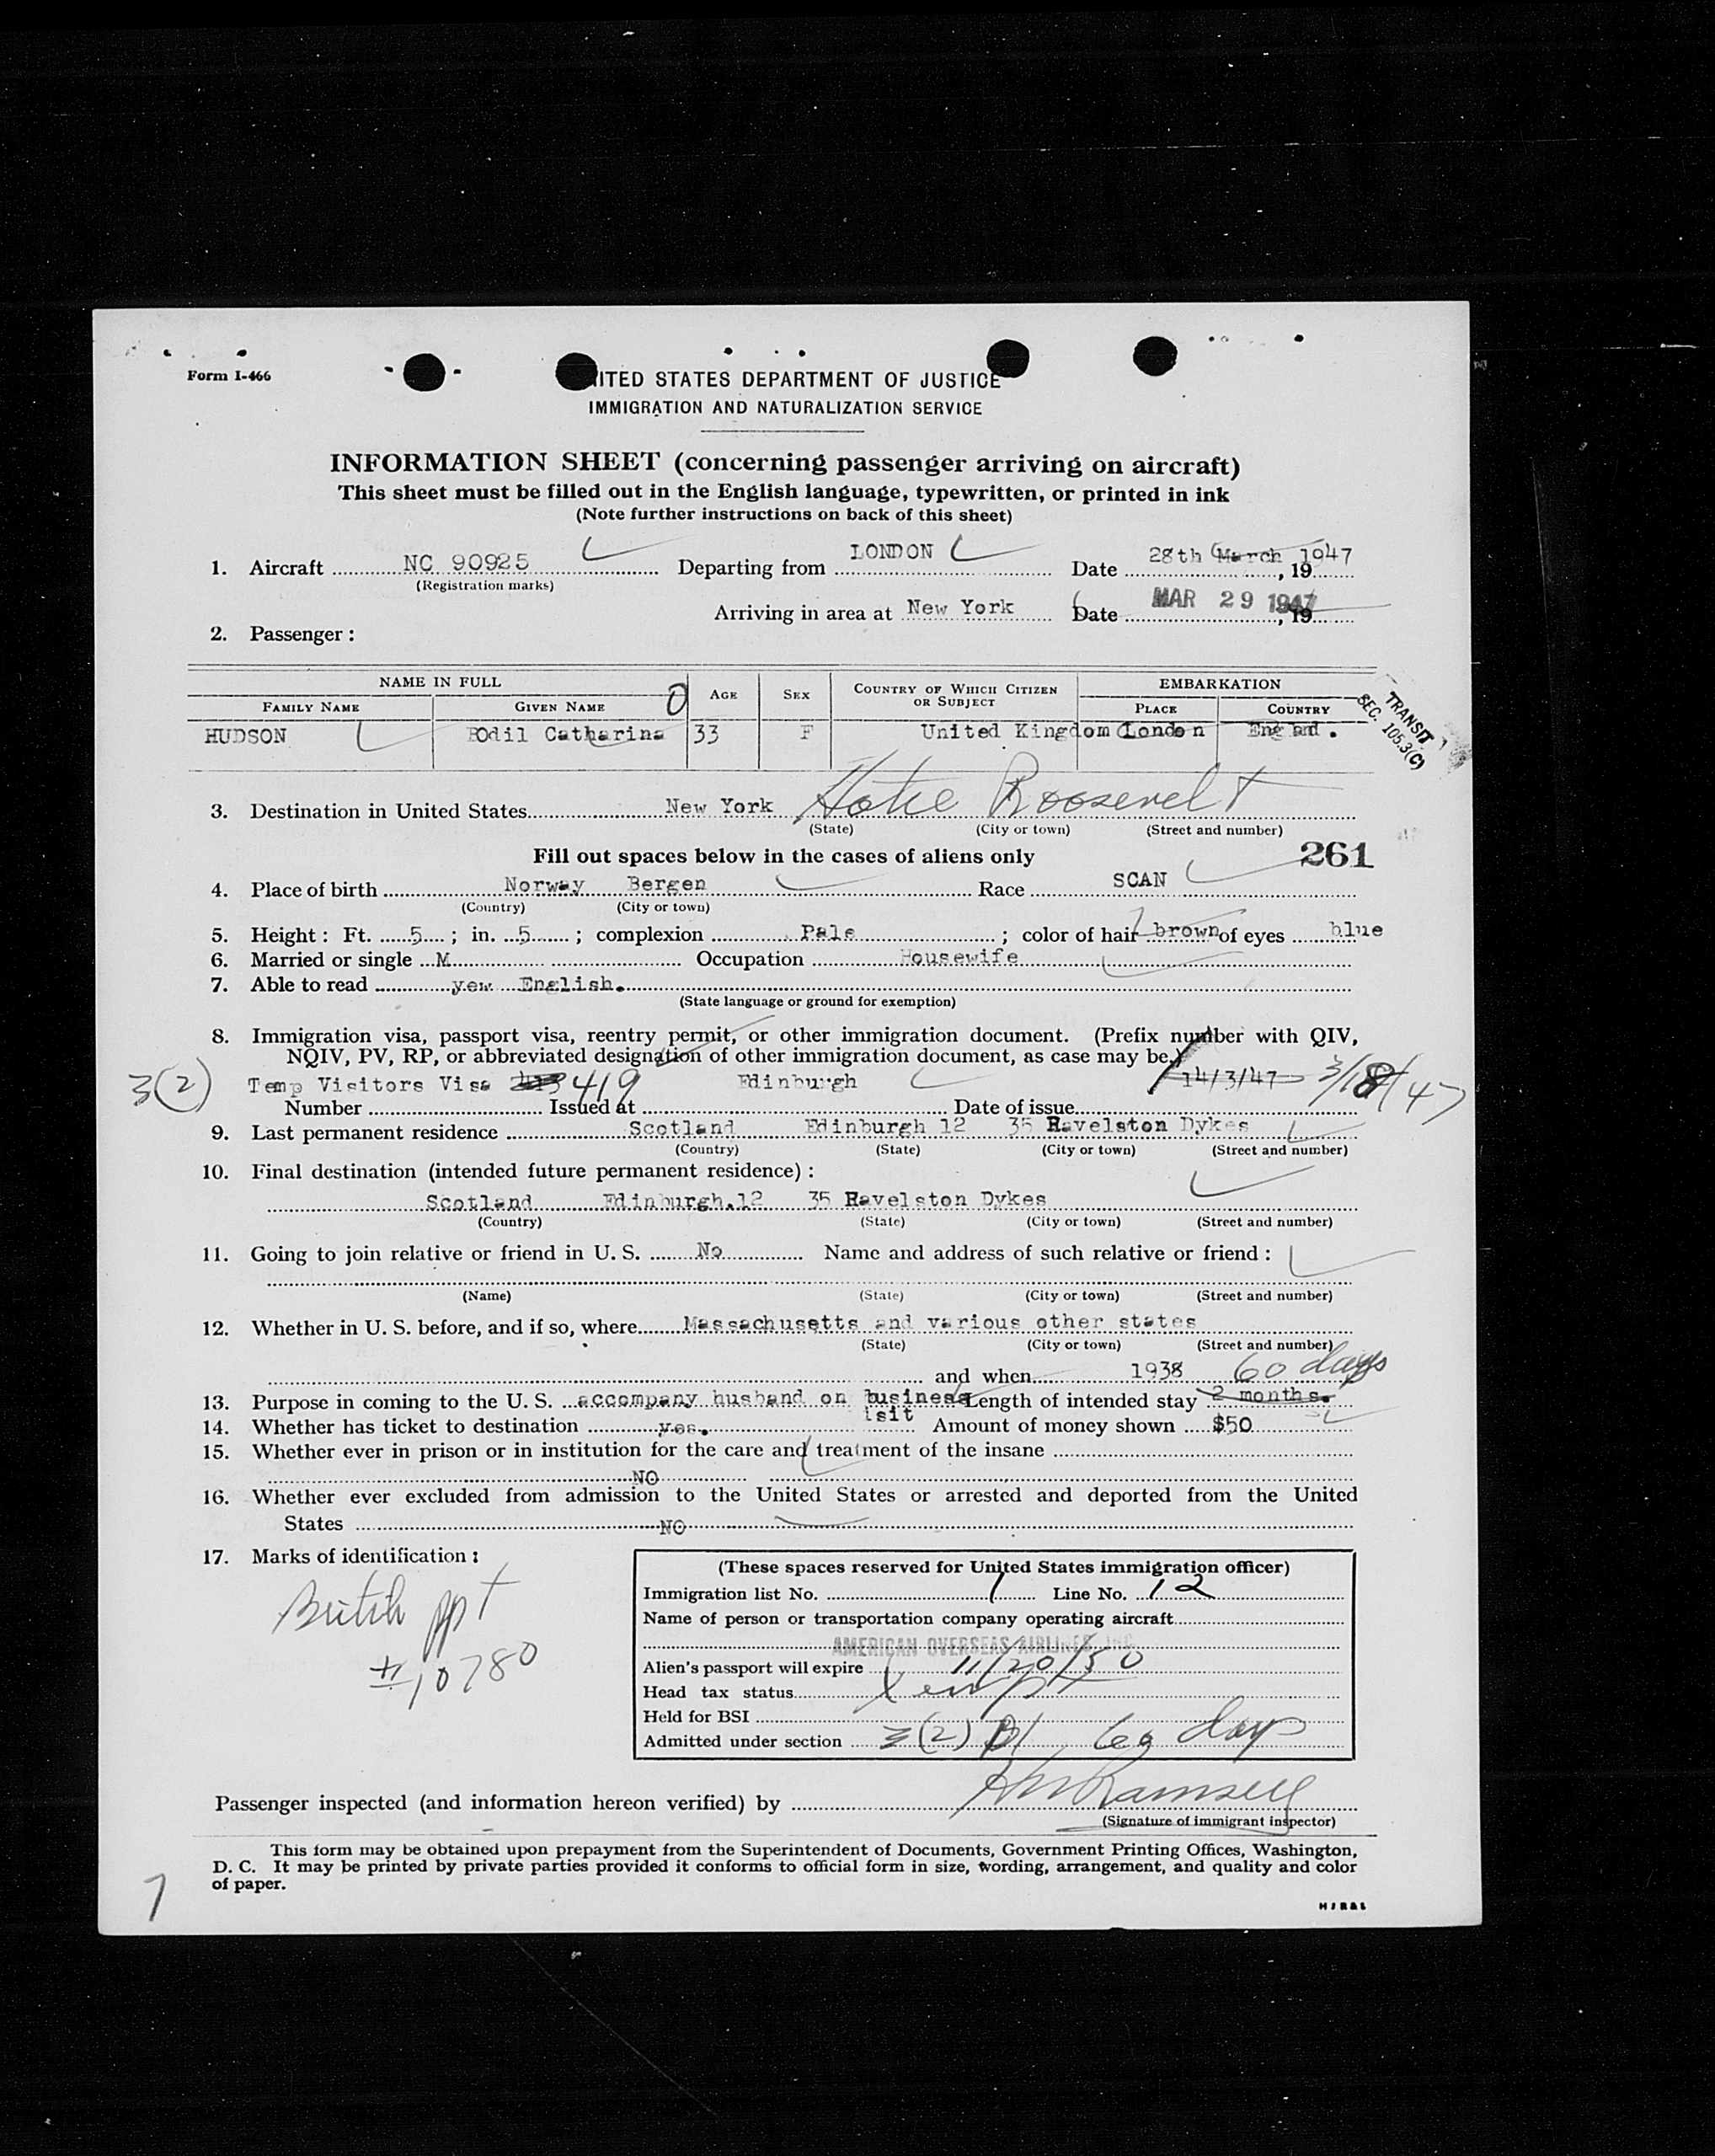 Form I-466
UNITED STATES DEPARTMENT OF JUSTICE
IMMIGRATION AND NATURALIZATION SERVICE
INFORMATION SHEET (concerning passenger arriving on aircraft)
This sheet must be filled out in the English language, typewritten, or printed in ink
(Note further instructions on back of this sheet)
1. Aircraft NC 90925 Departing from LONDON Date 28th March 1947, 19
(Registration marks)
Arriving in area at New York Date MAR 29 1947, 19
2. Passenger :
NAME IN FULL AGE SEX COUNTRY OF WHICH CITIZEN OR SUBJECT EMBARKATION
FAMILY NAME GIVEN NAME O PLACE COUNTRY
HUDSON Odil Catharina 33 F United Kingdom London England.
TRANSIT
SEC. 105.3(C)
3. Destination in United States New York Hotel Roosevelt
(State) (City or town) (Street and number)
Fill out spaces below in the cases of aliens only 261
4. Place of birth Norway Bergen Race SCAN
(Country) (City or town)
5. Height : Ft. 5 ; in. 5 ; complexion Pale ; color of hair brown of eyes blue
6. Married or single M Occupation Housewife
7. Able to read yew English.
(State language or ground for exemption)
8. Immigration visa, passport visa, reentry permit, or other immigration document. (Prefix number with QIV,
NQIV, PV, RP, or abbreviated designation of other immigration document, as case may be.)
3(2) Temp Visitors Visa 419 Edinburgh 14/3/47 3/18/47
Number Issued at Date of issue
9. Last permanent residence Scotland Edinburgh 12 35 Ravelston Dykes
(Country) (State) (City or town) (Street and number)
10. Final destination (intended future permanent residence) :
Scotland Edinburgh.12 35 Ravelston Dykes
(Country) (State) (City or town) (Street and number)
11. Going to join relative or friend in U. S. No Name and address of such relative or friend :
(Name) (State) (City or town) (Street and number)
12. Whether in U. S. before, and if so, where Massachusetts and various other states
(State) (City or town) (Street and number)
and when 1938 60 days
13. Purpose in coming to the U. S. accompany husband on business Length of intended stay 2 months.
isit
14. Whether has ticket to destination yes. Amount of money shown $50
15. Whether ever in prison or in institution for the care and treatment of the insane
NO
16. Whether ever excluded from admission to the United States or arrested and deported from the United
States NO
17. Marks of identification :
British ppt
# 10780
(These spaces reserved for United States immigration officer)
Immigration list No. 1 Line No. 12
Name of person or transportation company operating aircraft
AMERICAN OVERSEAS AIRLINES, INC.
Alien's passport will expire 11/20/50
Head tax status Xempt
Held for BSI
Admitted under section 3(2) B1 60 days
Passenger inspected (and information hereon verified) by HW Ramsey
(Signature of immigrant inspector)
This form may be obtained upon prepayment from the Superintendent of Documents, Government Printing Offices, Washington,
D. C. It may be printed by private parties provided it conforms to official form in size, wording, arrangement, and quality and color
of paper.
7